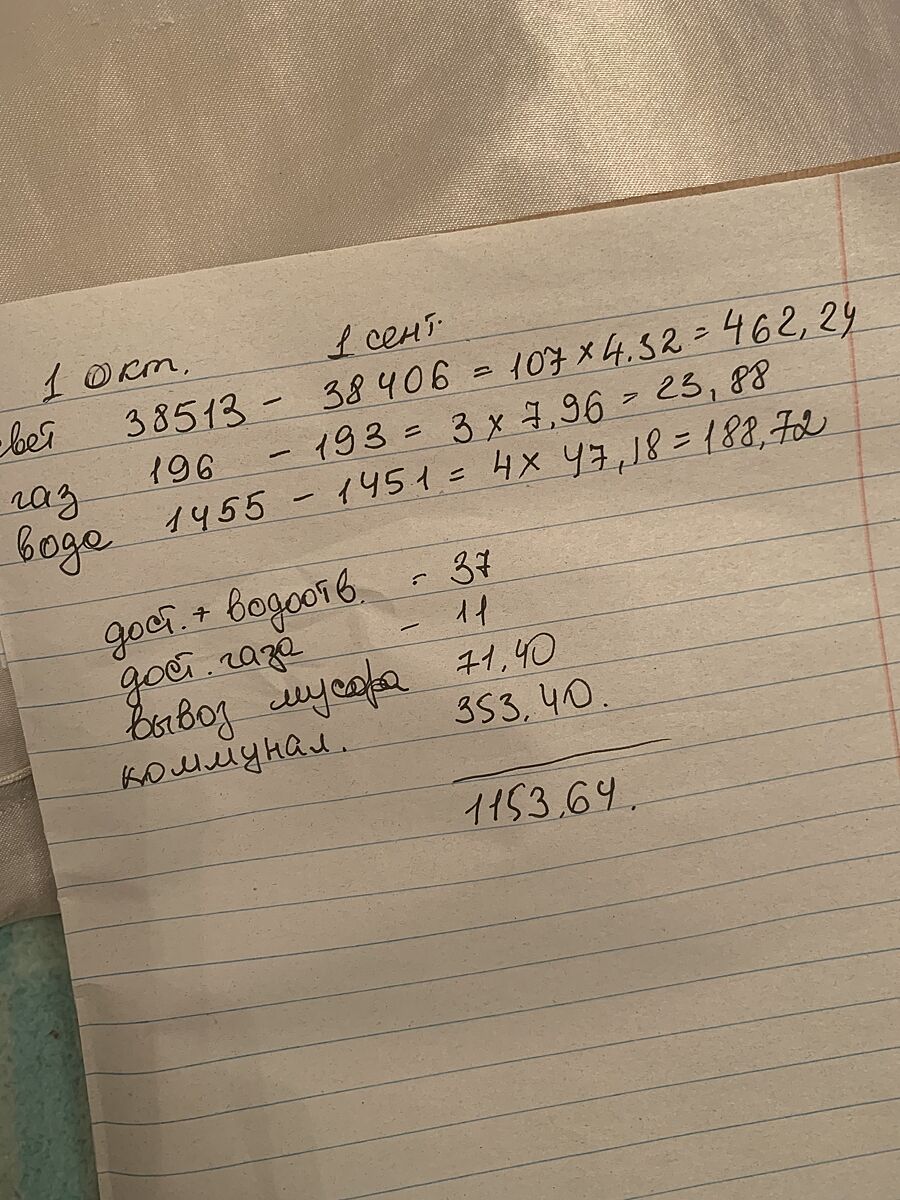 1 Окт. 1 сент.
свет 38513 - 38406 = 107 × 4.32 = 462,24
газ 196 - 193 = 3 × 7,96 = 23,88
вода 1455 - 1451 = 4 × 47,18 = 188,72
дост. + водоотв. = 37
дост. газа - 11
вывоз мусора 71.40
коммунал. 353.40.
1153.64.